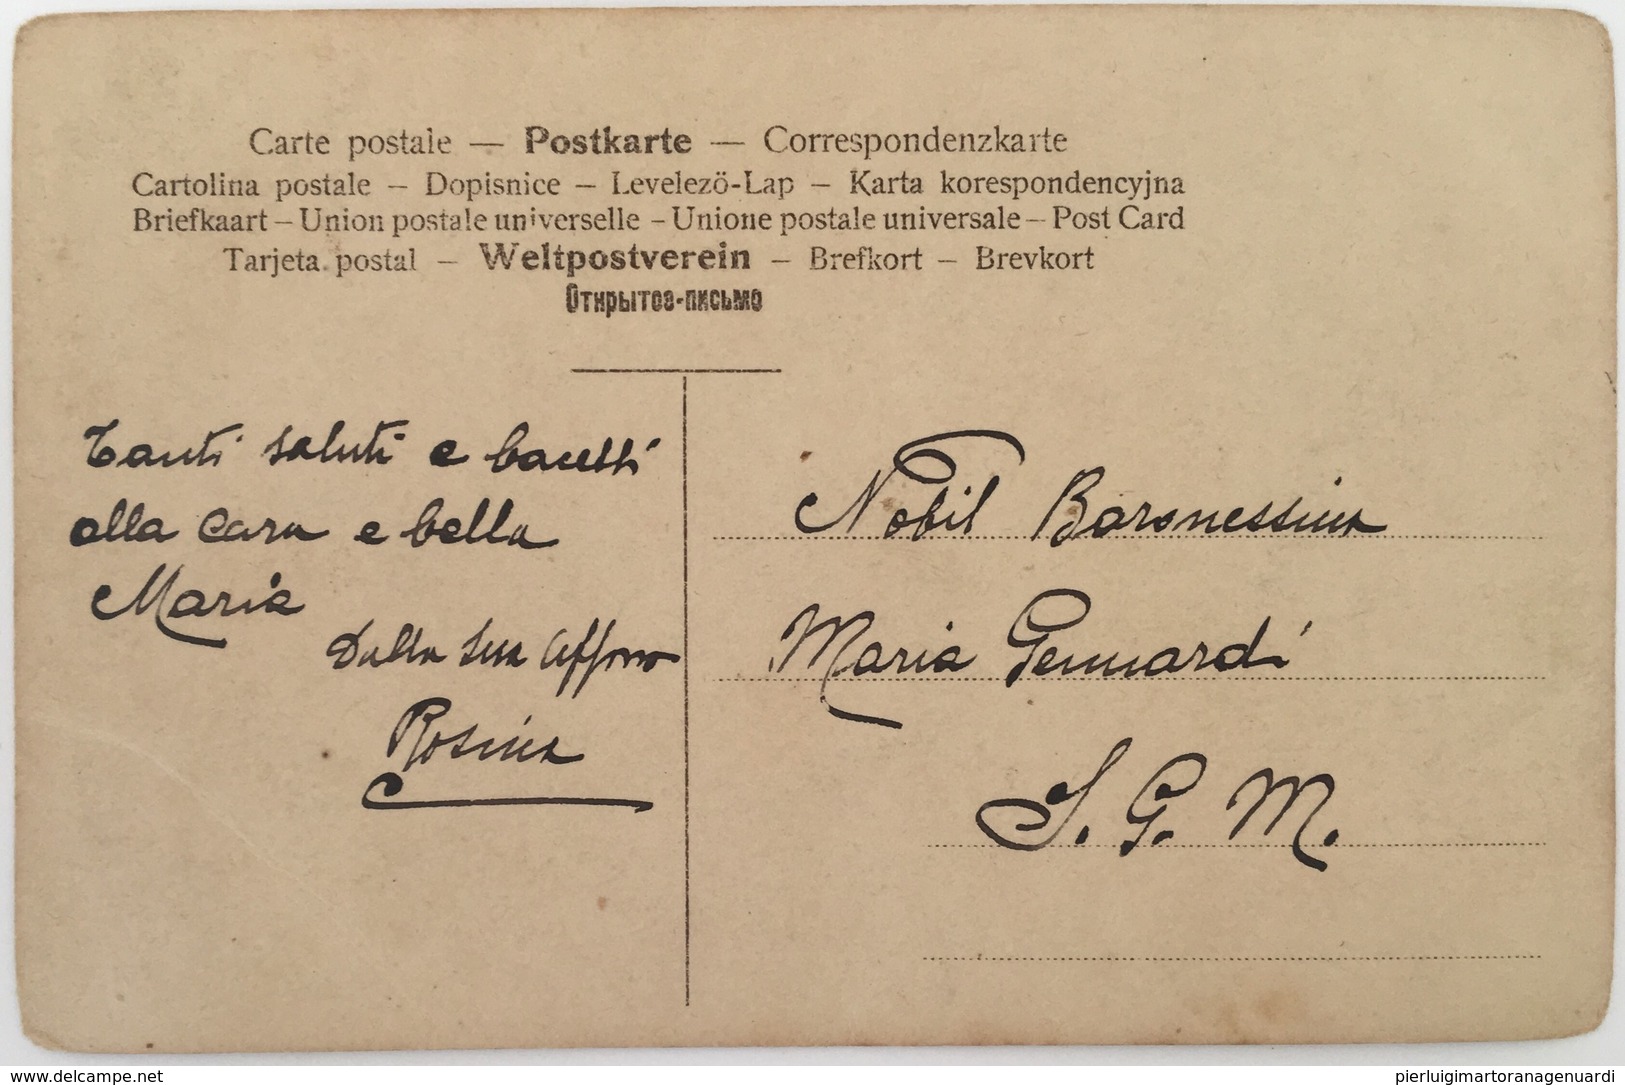 Carte postale — Postkarte — Correspondenzkarte
Cartolina postale – Dopisnice – Levelezö-Lap – Karta korespondencyjna
Briefkaart – Union postale universelle – Unione postale universale – Post Card
Tarjeta postal – Weltpostverein – Brefkort – Brevkort
Открытоэ-письмо
Tanti saluti e bacetti
alla cara e bella
Maria
Dalla sua affma
Rosina
Nobil Baronessina
Maria Gennardi
S. G. M.
www.delcampe.net
pierluigimartoranagenuardi